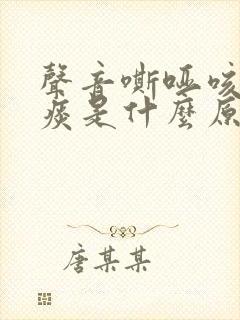 聲音嘶哑咳
痰是什麼原
唐某某